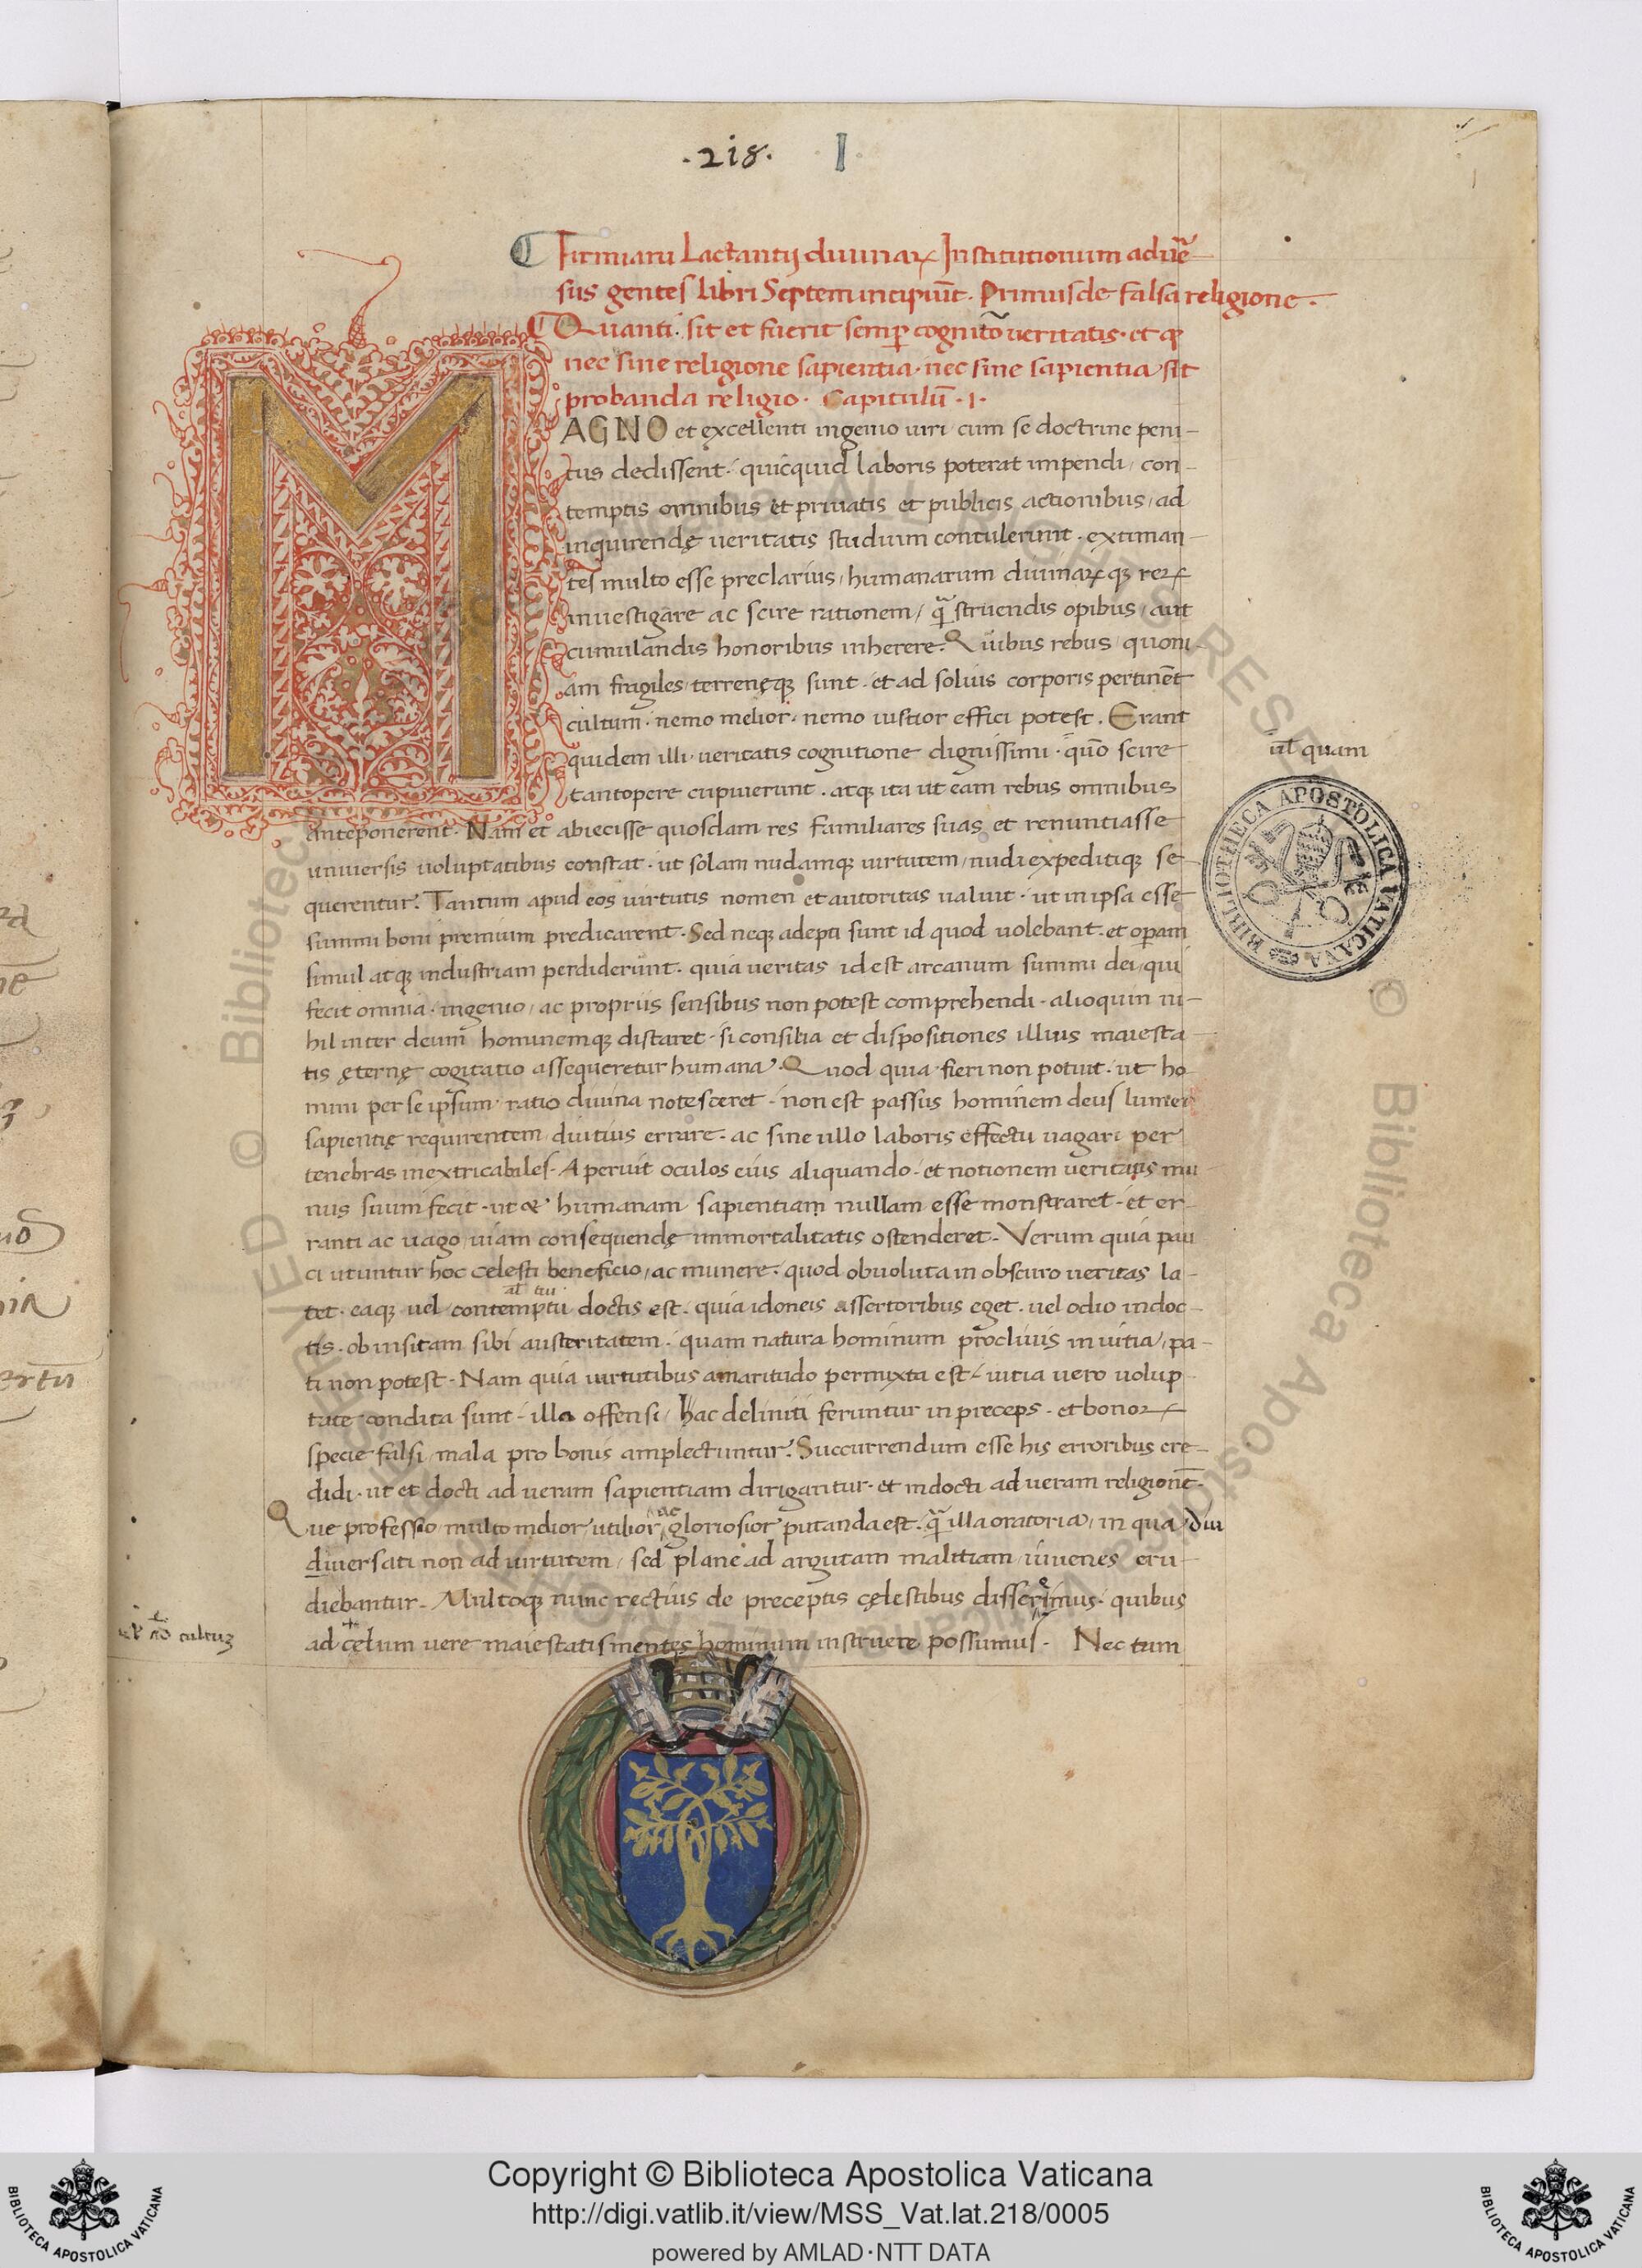 .218. I
Firmiani Lactantij diuinaꝝ Institutionum aduer̃
sus gentes libri Septem incipiũt. Primus de falsa religione.
Quanti sit et fuerit semꝑ cognitõ ueritatis. et ꝙ
nec sine religione sapientia. nec sine sapientia sit
probanda religio. Capitulũ. 1.
MAGNO et excellenti ingenio uiri cum se doctrine peni-
tus dedissent. quicquid laboris poterat impendi, con-
temptis omnibus et priuatis et publicis actionibus, ad
inquirendę ueritatis studium contulerunt. existiman-
tes multo esse preclarius, humanarum diuinaꝝqꝫ reꝝ
inuestigare ac scire rationem, q̃ struendis opibus, aut
cumulandis honoribus inherere. Quibus rebus, quoni-
am fragiles, terrenęqꝫ sunt. et ad solius corporis pertinẽt
cultum. nemo melior. nemo iustior effici potest. Erant
quidem illi. ueritatis cognitione dignissimi. quõ scire
ul̃ quam
tantopere cupiuerunt. atqꝫ ita ut eam rebus omnibus
anteponerent. Nam et abiecisse quosdam res familiares suas et renuntiasse
uniuersis uoluptatibus constat. ut solam nudamqꝫ uirtutem, nudi expeditiqꝫ se-
querentur. Tantum apud eos uirtutis nomen et autoritas ualuit. ut in ipsa esse
summi boni premium predicarent. Sed neqꝫ adepti sunt id quod uolebant. et oꝑam
simul atqꝫ industriam perdiderunt. quia ueritas id est arcanum summi dei, qui
fecit omnia. ingenio, ac propriis sensibus non potest comprehendi. alioquin ni-
hil inter deum hominemqꝫ distaret. si consilia et dispositiones illius maiesta-
tis ęternę cogitatio assequeretur humana. Quod quia fieri non potuit. ut ho
mini per se ipsum ratio diuina notesceret. non est passus hominem deus lumen
sapientię requirentem diutius errare. ac sine ullo laboris effectu uagari per
tenebras inextricabiles. Aperuit oculos eius aliquando. et notionem ueritatis mu
nus suum fecit. ut et humanam sapientiam nullam esse monstraret. et er-
ranti ac uago uiam consequendę immortalitatis ostenderet. Verum quia pau
ci utuntur hoc celesti beneficio, ac munere. quod obuoluta in obscuro ueritas la-
al̃ tui
tet. eaqꝫ uel contemptu doctis est. quia idoneis assertoribus eget. uel odio indoc-
tis. ob insitam sibi austeritatem. quam natura hominum proclius in uitia, pa-
ti non potest. Nam quia uirtutibus amaritudo permixta est. uitia uero uolup
tate condita sunt. illa offensi, hac deliniti feruntur in preceps. et bonoꝝ
specie falsi mala pro bonis amplectuntur. Succurrendum esse his erroribus cre-
didi. ut et docti ad ueram sapientiam dirigantur. et indocti ad ueram religionẽ.
Que professio multo melior utilior ac gloriosior putanda est. q̃ illa oratoria, in qua diu
diuersati non ad uirtutem, sed plane ad argutam malitiam iuuenes eru-
diebantur. Multoqꝫ nunc rectius de preceptis cęlestibus disserimus. quibus
ad cęlum uere maiestatis mentes hominum instruere possumus. Nec tum
cultuꝫ
BIBLIOTHECA APOSTOLICA VATICANA
© Biblioteca Apostolica Vaticana. ALL RIGHTS RESERVED
Copyright © Biblioteca Apostolica Vaticana
http://digi.vatlib.it/view/MSS_Vat.lat.218/0005
powered by AMLAD·NTT DATA
BIBLIOTECA APOSTOLICA VATICANA
BIBLIOTECA APOSTOLICA VATICANA